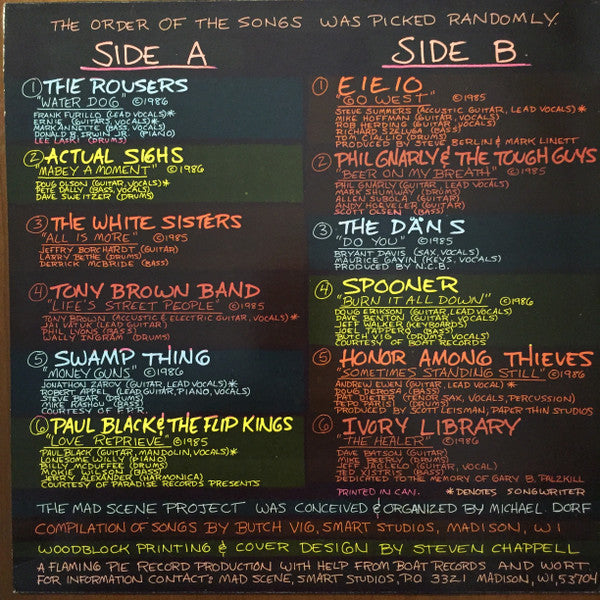 THE ORDER OF THE SONGS WAS PICKED RANDOMLY.
SIDE A
1 THE ROUSERS
"WATER DOG" ©1986
FRANK FURILLO (LEAD VOCALS)*
ERNIE (GUITARS, VOCALS)*
MARK ANNETTE (BASS, VOCALS)
DONALD B. IRWIN JR. (PIANO)
LEE (DRUMS)
2 ACTUAL SIGHS
"MABEY A MOMENT" ©1986
DOUG OLSON (GUITAR, VOCALS)*
PETE DALLY (BASS, VOCALS)
DAVE SWEITZER (DRUMS)
3 THE WHITE SISTERS
"ALL IS MORE" ©1985
JEFFRY BORCHARDT (GUITAR)
LARRY BETHE (DRUMS)
DERRICK McBRIDE (BASS)
4 TONY BROWN BAND
"LIFE'S STREET PEOPLE" ©1985
TONY BROWN (ACCUSTIC & ELECTRIC GUITAR, VOCALS)*
JAI VATUK (LEAD GUITAR)
ALL LYONS (BASS)
WALLY INGRAM (DRUMS)
5 SWAMP THING
"MONEY GUNS" ©1986
JONATHON ZAROV (GUITAR, LEAD VOCALS)*
ROBERT APPEL (LEAD GUITAR, PIANO, VOCALS)
STEVE BEAR (DRUMS)
MIKE KASHOU (BASS)
COURTESY OF F.P.R.
6 PAUL BLACK & THE FLIP KINGS
"LOVE REPRIEVE" ©1985
PAUL BLACK (GUITAR, MANDOLIN, VOCALS)*
LONESOME WILLY (PIANO)
BILLY McDUFFEE (DRUMS)
MOKIE WILSON (BASS)
JERRY ALEXANDER (HARMONICA)
COURTESY OF PARADISE RECORDS PRESENTS
SIDE B
1 EIEIO
"GO WEST" ©1985
STEVE SUMMERS (ACCUSTIC GUITAR, LEAD VOCALS)*
MIKE HOFFMAN (GUITAR, VOCALS)
ROB HARDING (GUITAR, VOCALS)
RICHARD SZELUGA (BASS)
TOM CALELIO (DRUMS)
PRODUCED BY STEVE BERLIN & MARK LINETT
2 PHIL GNARLY & THE TOUGH GUYS
"BEER ON MY BREATH" ©1985
PHIL GNARLY (GUITAR, LEAD VOCALS)
MARK SHUMWAY (DRUMS)
ALLEN SUBOLA (GUITAR)
ANDY HOEVELER (GUITAR)
SCOTT OLSEN (BASS)
3 THE DÄNS
"DO YOU" ©1985
BRYANT DAVIS (SAX, VOCALS)
MAURICE GAVIN (KEYS, VOCALS)
PRODUCED BY N.C.B.
4 SPOONER
"BURN IT ALL DOWN" ©1986
DOUG ERIKSON, (GUITAR, LEAD VOCALS)
DAVE BENTON (GUITAR, VOCALS)
JEFF WALKER (KEYBOARDS)
JOEL TAPPERO (BASS)
BUTCH VIG (DRUMS, VOCALS)
COURTESY OF BOAT RECORDS
5 HONOR AMONG THIEVES
"SOMETIMES STANDING STILL" ©1986
ANDREW EWEN (GUITAR, LEAD VOCAL)*
DOUG DEROSA (BASS)
PAT DIETER (TENOR SAX, VOCALS, PERCUSSION)
PO PARIS (DRUMS)
PRODUCED BY SCOTT LEISMAN, PAPER THIN STUDIOS
6 IVORY LIBRARY
"THE HEALER" ©1986
DAVE BATSON (GUITAR)
MIKE BEERLY (DRUMS)
JEFF JAGLEO (GUITAR, VOCAL)
(BASS)
DEDICATED TO THE MEMORY OF GARY B. PALZKILL
PRINTED IN CAN. *DENOTES SONGWRITER
THE MAD SCENE PROJECT WAS CONCEIVED & ORGANIZED BY MICHAEL DORF
COMPILATION OF SONGS BY BUTCH VIG, SMART STUDIOS, MADISON, WI
WOODBLOCK PRINTING & COVER DESIGN BY STEVEN CHAPPELL
A FLAMING PIE RECORD PRODUCTION WITH HELP FROM BOAT RECORDS AND WORT.
FOR INFORMATION CONTACT: MAD SCENE, SMART STUDIOS, P.O. 3321 MADISON, WI, 53704